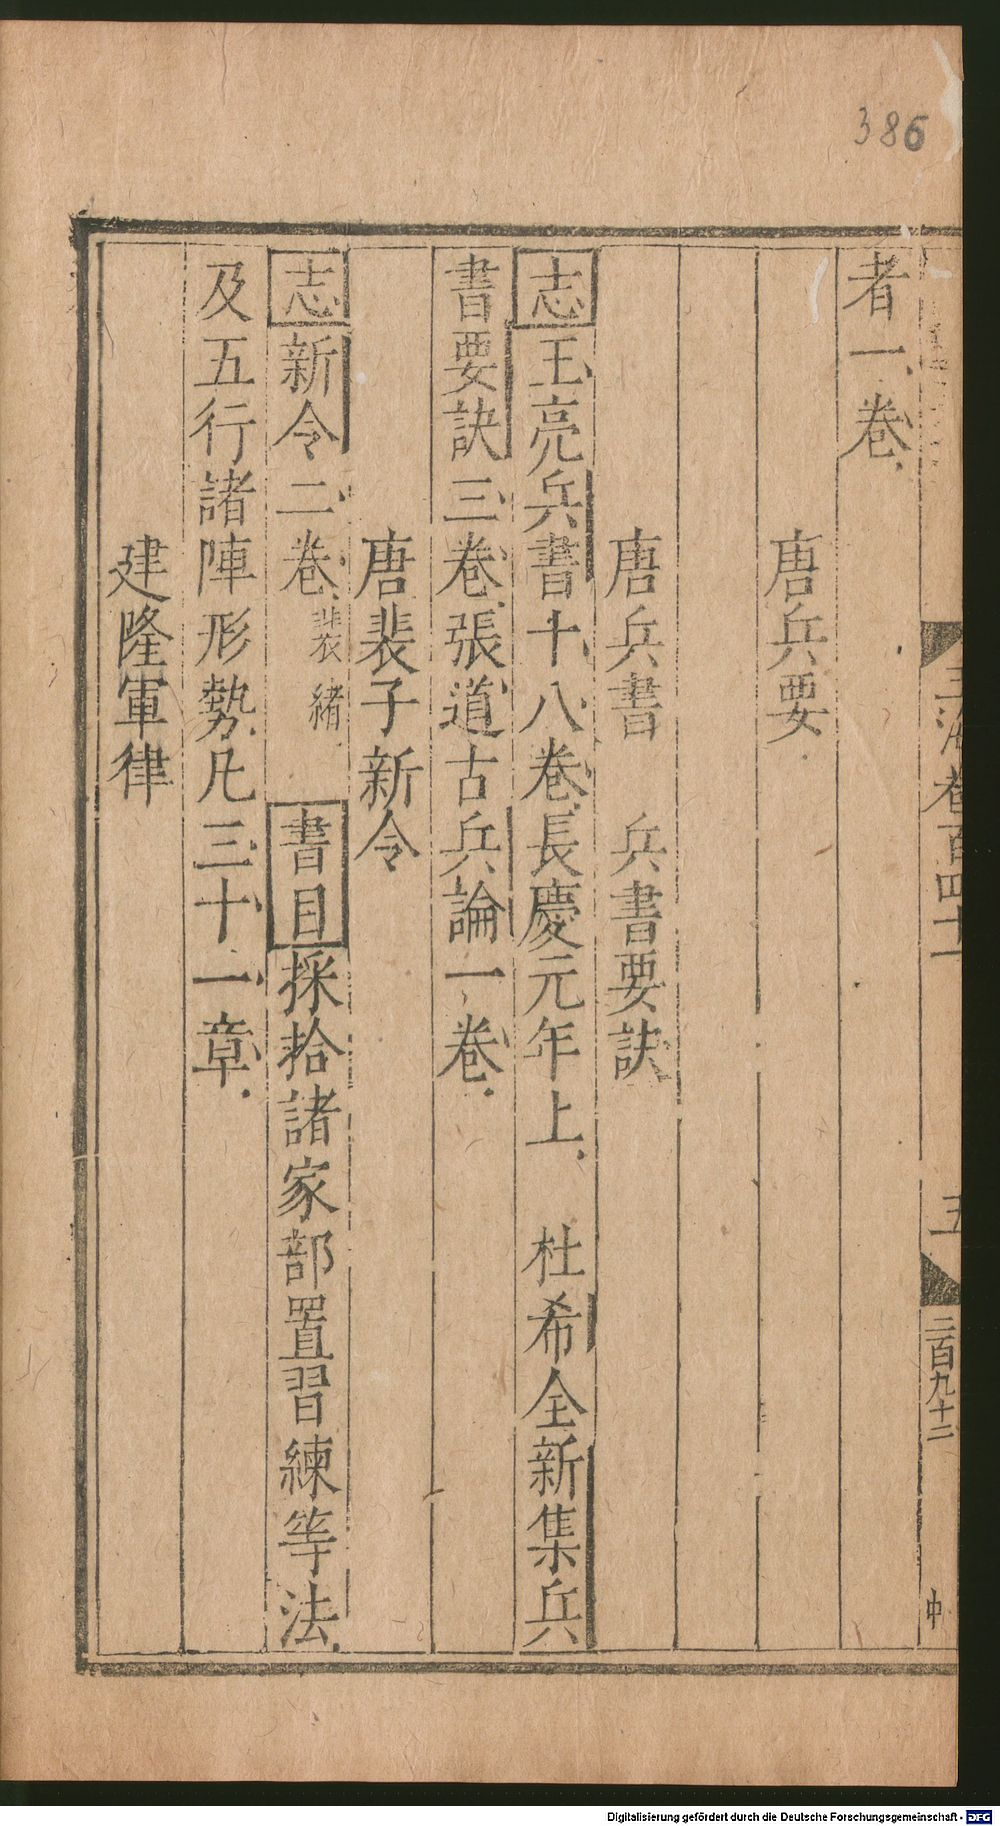 386
玉海卷百四十一
五
二百九十二
中
者一卷
唐兵要
唐兵書　兵書要訣
志王亮兵書十八卷長慶元年上　杜希全新集兵
書要訣三卷張道古兵論一卷
唐裴子新令
志新令二卷裴緒　書目採拾諸家部置習練等法
及五行諸陣形勢凡三十一章
建隆軍律
Digitalisierung gefördert durch die Deutsche Forschungsgemeinschaft - DFG